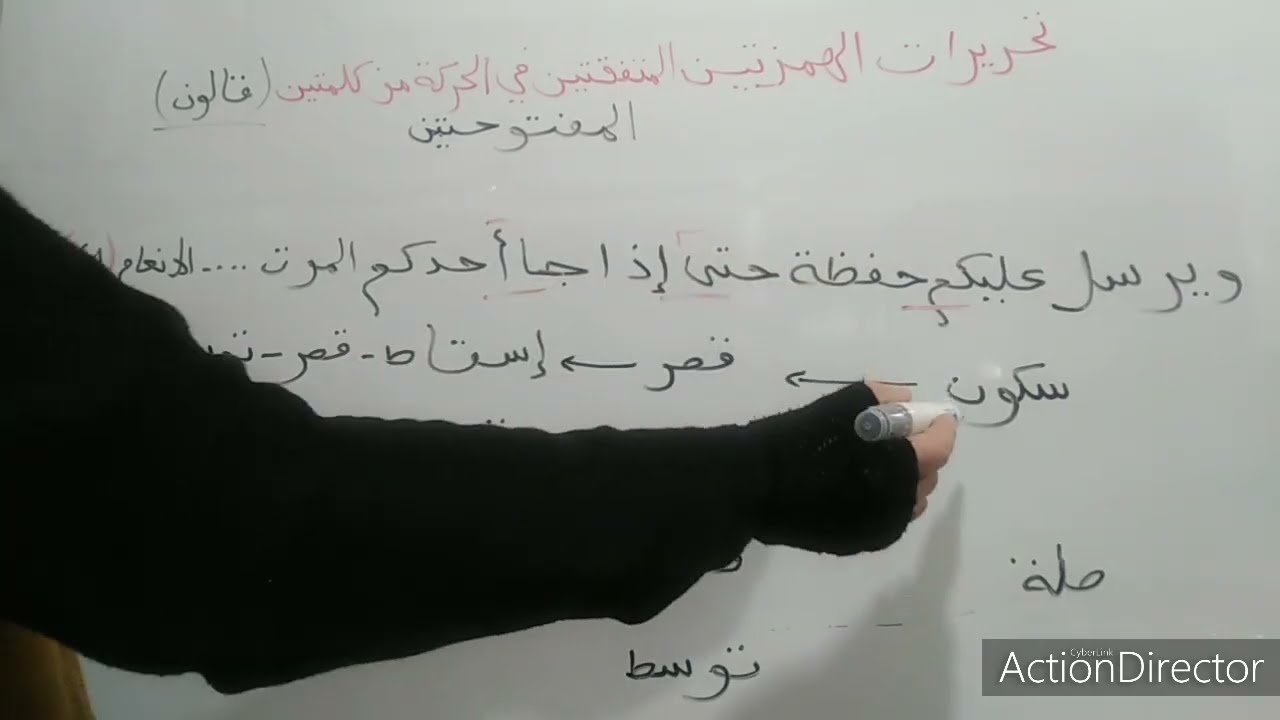 تحريرات الهمزتين المتفقتين في الحركة من كلمتين (قالون)
المفتوحتين
ويرسل عليكم حفظة حتى إذا جاأحدكم الموت .... الانعام
سكون ← قصر ← إسقاط - قصر -
صلة
توسط
CyberLink
ActionDirector